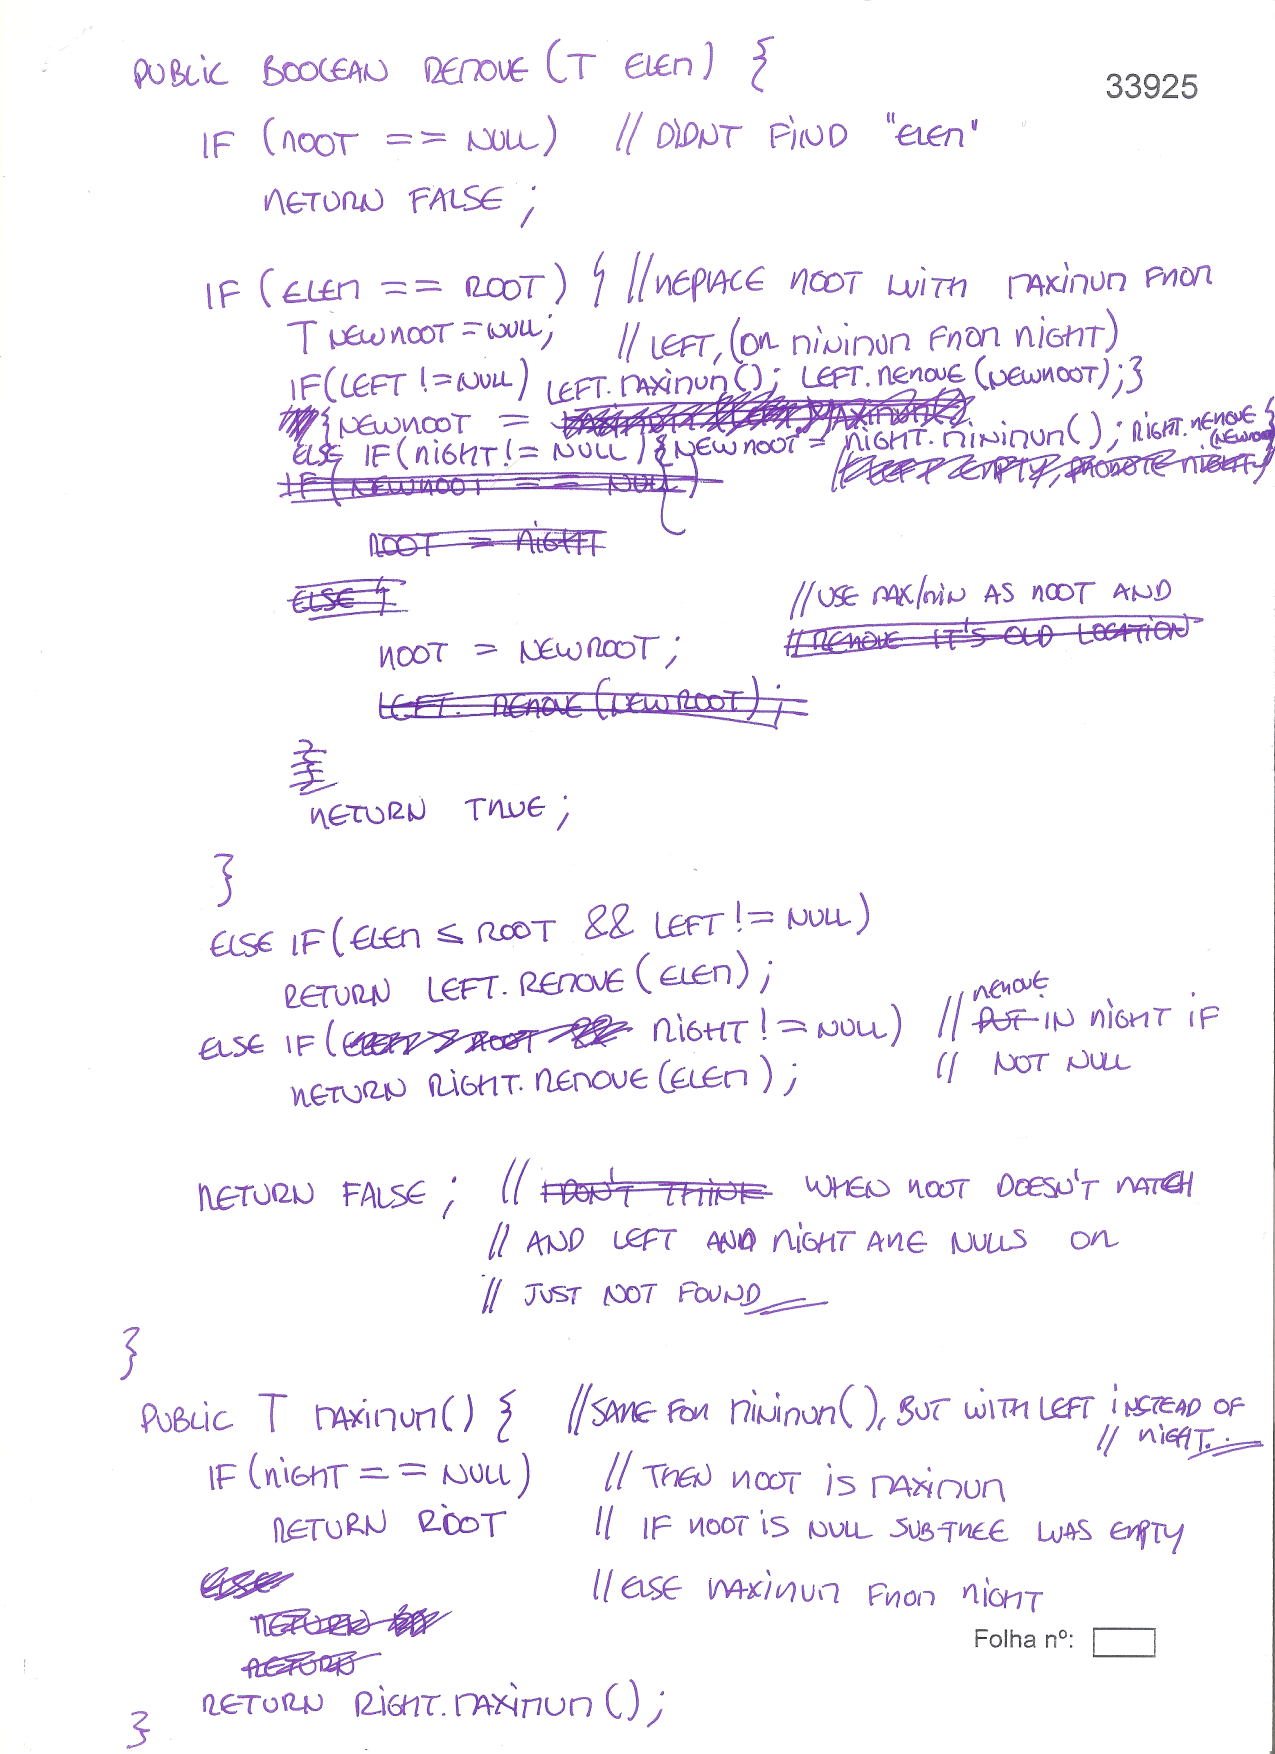 PUBLIC BOOLEAN REMOVE (T ELEM) {
33925
IF (ROOT == NULL) // DIDNT FIND "ELEM"
RETURN FALSE ;
IF (ELEM == ROOT) { // REPLACE ROOT WITH MAXIMUM FROM
T NEWROOT = NULL; // LEFT, (OR MINIMUM FROM RIGHT)
IF(LEFT != NULL) LEFT.MAXIMUM(); LEFT.REMOVE (NEWROOT);}
{NEWROOT =
ELSE IF(RIGHT != NULL) {NEWROOT = RIGHT.MINIMUM(); RIGHT.REMOVE (NEWROOT) }
IF (NEWROOT == NULL) // LEFT EMPTY, PROMOTE RIGHT
ROOT = RIGHT
ELSE {
// USE MAX/MIN AS ROOT AND
// REMOVE IT'S OLD LOCATION
ROOT = NEWROOT ;
LEFT. REMOVE (NEWROOT) ;
}
RETURN TRUE ;
}
ELSE IF (ELEM ≤ ROOT && LEFT != NULL)
RETURN LEFT. REMOVE (ELEM) ;
ELSE IF (ELEM > ROOT && RIGHT != NULL) // PUT REMOVE IN RIGHT IF
RETURN RIGHT. REMOVE (ELEM) ; // NOT NULL
RETURN FALSE ; // I DON'T THINK WHEN ROOT DOESN'T MATCH
// AND LEFT AND RIGHT ARE NULLS OR
// JUST NOT FOUND
}
PUBLIC T MAXIMUM() { // SAME FOR MINIMUM(), BUT WITH LEFT INSTEAD OF
// RIGHT.
IF (RIGHT == NULL) // THEN ROOT IS MAXIMUM
RETURN ROOT // IF ROOT IS NULL SUB-TREE WAS EMPTY
ELSE // ELSE MAXIMUM FROM RIGHT
RETURN
RETURN
Folha nº:
RETURN RIGHT.MAXIMUM () ;
}